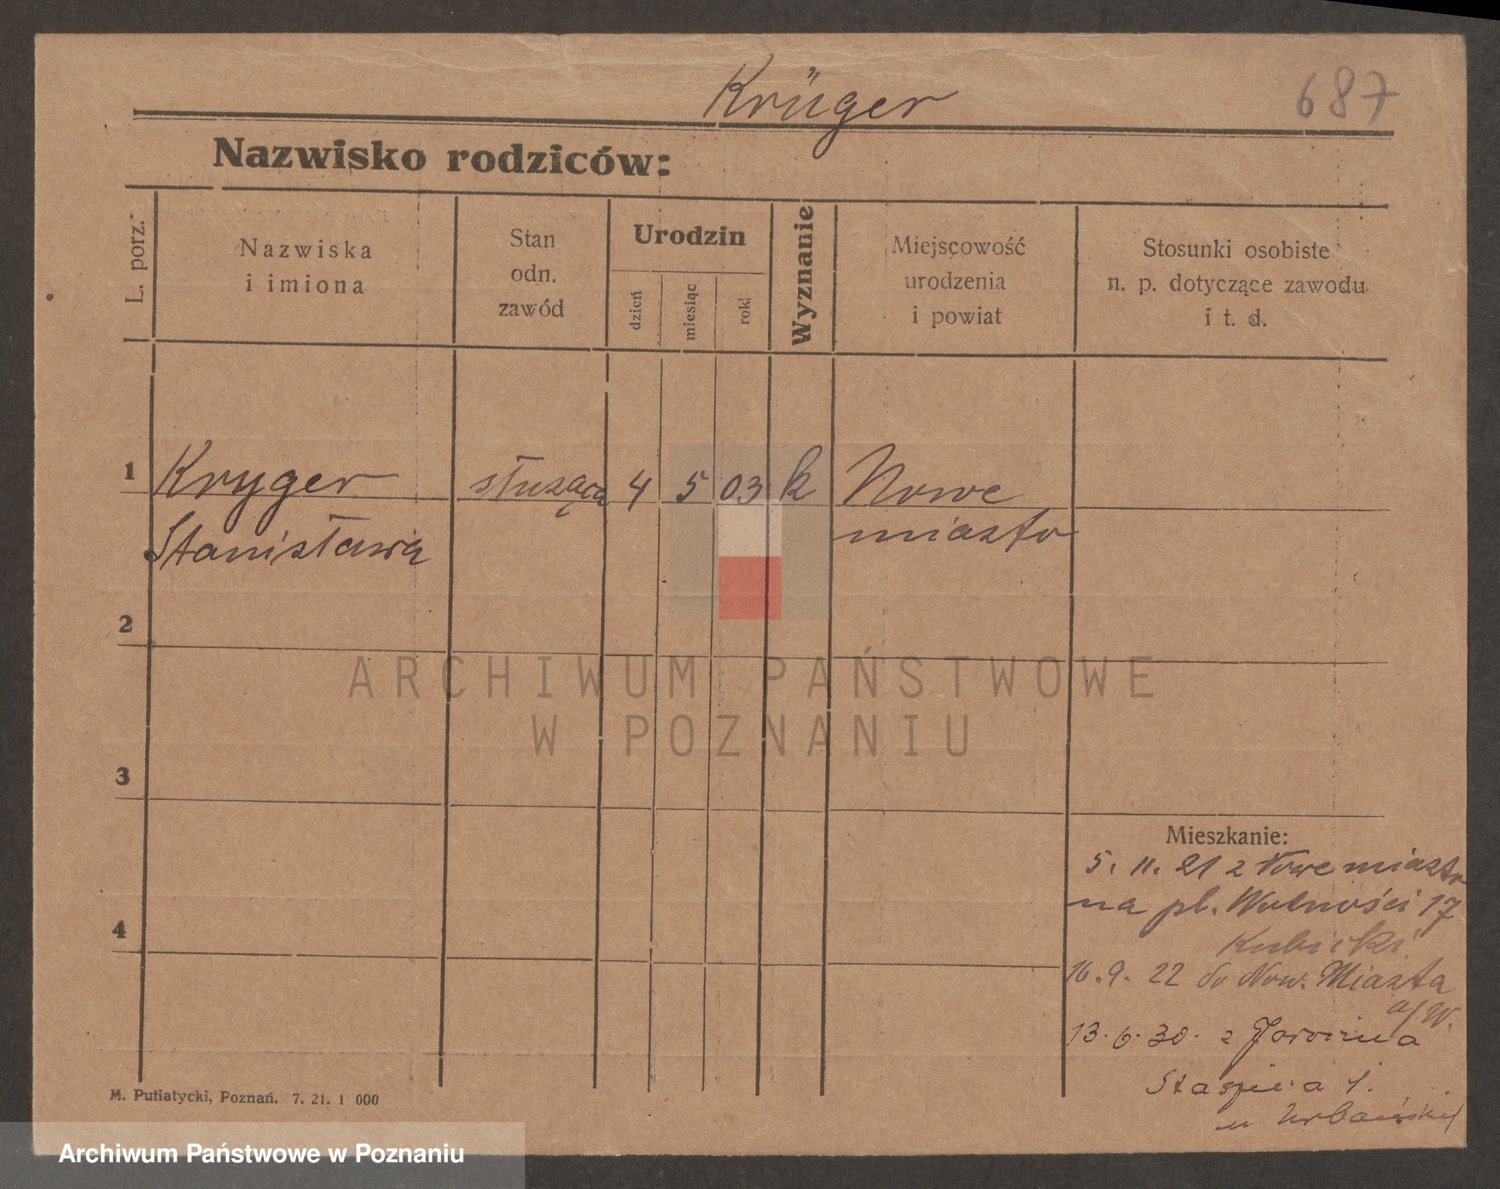 Krüger
687
Nazwisko rodziców:
L. porz.
Nazwiska
i imiona
Stan
odn.
zawód
Urodzin
dzień
miesiąc
rok
Wyznanie
Miejscowość
urodzenia
i powiat
Stosunki osobiste
n. p. dotyczące zawodu
i t. d.
1
Kryger
służąca
4
5
03
k
Nowe
Stanisława
miasto
2
3
4
ARCHIWUM PAŃSTWOWE
W POZNANIU
Mieszkanie:
5. 11. 21 z Nowe miasto
na pl. Wolności 17
Kubicki
16. 9. 22 do Now. Miasta
a/W.
13. 6. 30. z
Staszica 1.
u Urbański
M. Putiatycki, Poznań. 7. 21. 1 000
Archiwum Państwowe w Poznaniu